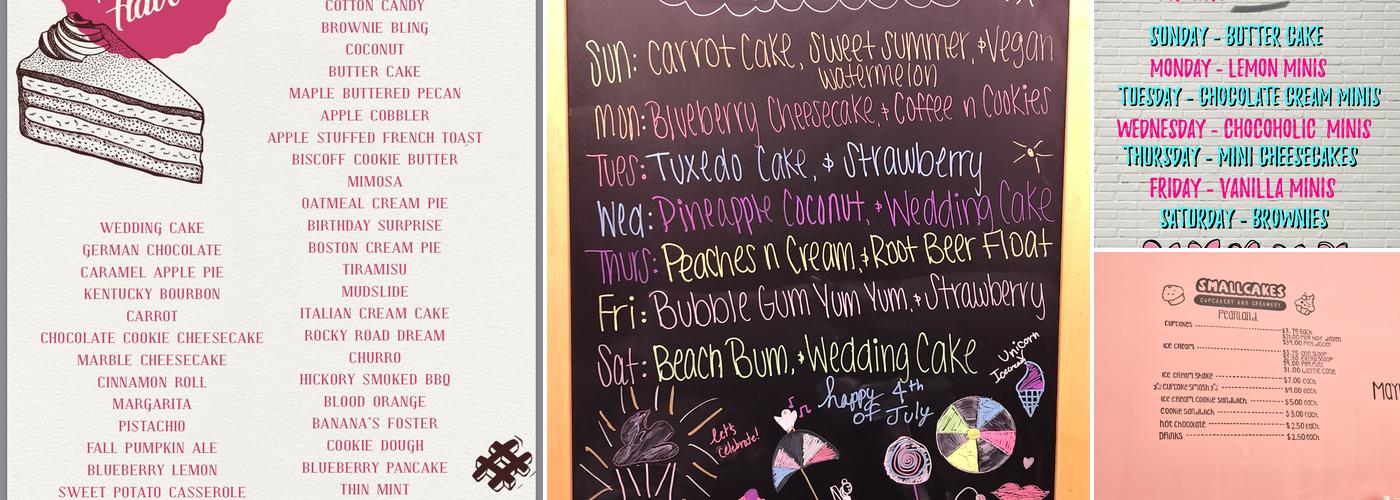 Hair
WEDDING CAKE
GERMAN CHOCOLATE
CARAMEL APPLE PIE
KENTUCKY BOURBON
CARROT
CHOCOLATE COOKIE CHEESECAKE
MARBLE CHEESECAKE
CINNAMON ROLL
MARGARITA
PISTACHIO
FALL PUMPKIN ALE
BLUEBERRY LEMON
SWEET POTATO CASSEROLE
COTTON CANDY
BROWNIE BLING
COCONUT
BUTTER CAKE
MAPLE BUTTERED PECAN
APPLE COBBLER
APPLE STUFFED FRENCH TOAST
BISCOFF COOKIE BUTTER
MIMOSA
OATMEAL CREAM PIE
BIRTHDAY SURPRISE
BOSTON CREAM PIE
TIRAMISU
MUDSLIDE
ITALIAN CREAM CAKE
ROCKY ROAD DREAM
CHURRO
HICKORY SMOKED BBQ
BLOOD ORANGE
BANANA'S FOSTER
COOKIE DOUGH
BLUEBERRY PANCAKE
THIN MINT
Sun: Carrot Cake, Sweet Summer, & Vegan
watermelon
Mon: Blueberry Cheesecake, & Coffee n Cookies
Tues: Tuxedo Cake, & Strawberry
Wed: Pineapple Coconut, & Wedding Cake
Thurs: Peaches n Cream, & Root Beer Float
Fri: Bubble Gum Yum Yum, & Strawberry
Sat: Beach Bum, & Wedding Cake
Unicorn
Icecream
happy 4th
OF July
let's
celebrate!
SUNDAY - BUTTER CAKE
MONDAY - LEMON MINIS
TUESDAY - CHOCOLATE CREAM MINIS
WEDNESDAY - CHOCOHOLIC MINIS
THURSDAY - MINI CHEESECAKES
FRIDAY - VANILLA MINIS
SATURDAY - BROWNIES
SMALLCAKES
CUPCAKERY AND CREAMERY
Pearland
Cupcakes $3.75 each
$21.00 per half dozen
$39.00 per dozen
Ice Cream $3.75 one scoop
$1.00 waffle cone
Ice Cream Shake $7.00 each
Cupcake Smash $9.00 each
Ice Cream Cookie Sandwich $5.00 each
Cookie Sandwich $3.00 each
Hot Chocolate $2.50 each
Drinks $2.50 each